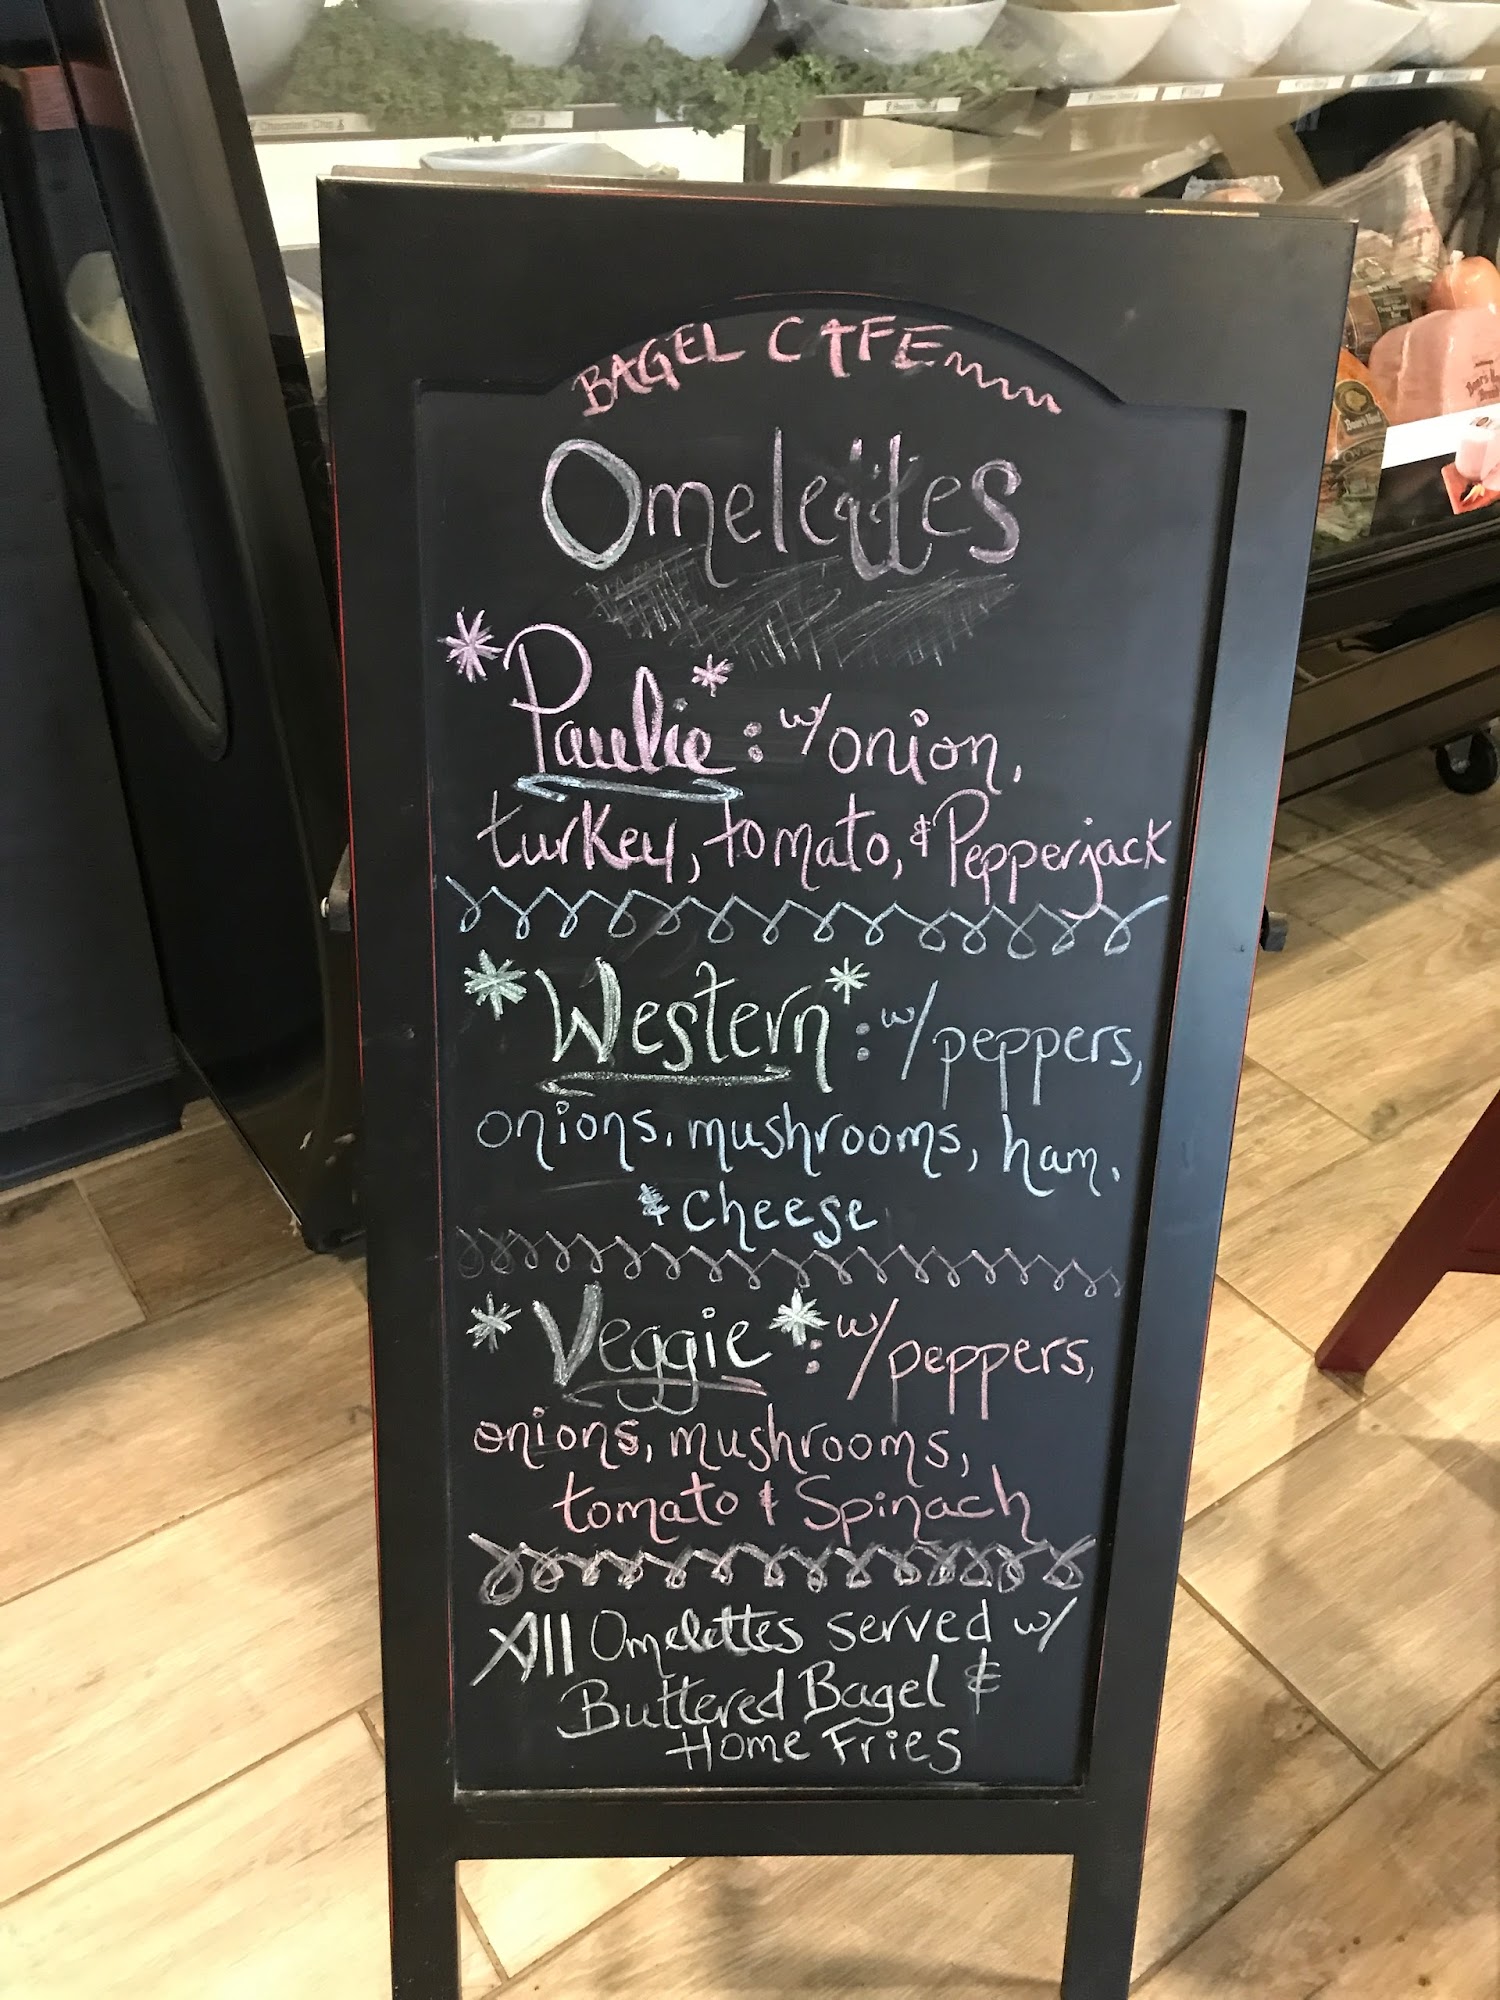 Chocolate Chip
Olive
BAGEL CAFE
Omelettes
*Paulie* : w/ onion,
turkey, tomato, & Pepperjack
*Western* : w/ peppers,
onions, mushrooms, ham,
& cheese
*Veggie* : w/ peppers,
onions, mushrooms,
tomato & Spinach
All Omelettes served w/
Buttered Bagel &
Home Fries
Boar's Head